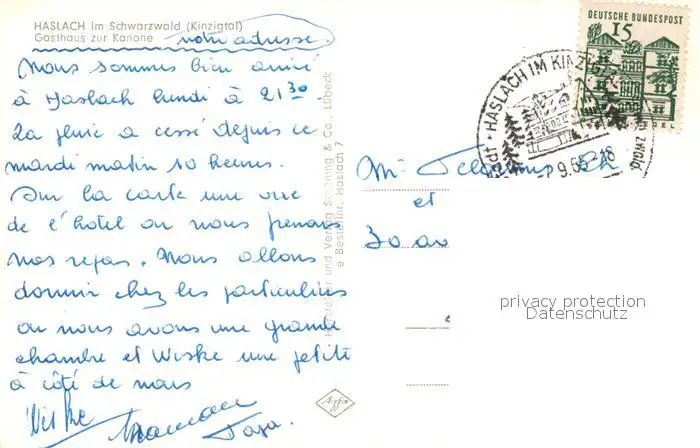 HASLACH im Schwarzwald (Kinzigtal)
Gasthaus zur Kanone
notre adresse
Nous sommes bien arrivé
à Haslach lundi à 21 30
La pluie a cessé depuis ce
mardi matin 10 heures.
Sur la carte une vue
de l'hôtel ou nous prenons
nos repas. Nous allons
dormir chez les particuliers
ou nous avons une grande
chambre et Wiske une petite
à côté de nous
Wiske Maman
Papa.
Schöning & Co., Lübeck
und Verlag
Bestellnr. Haslach 7
Agfa
DEUTSCHE BUNDESPOST
15
HASLACH IM KINZIG
9.65-18
Mr
et
30 av
privacy protection
Datenschutz